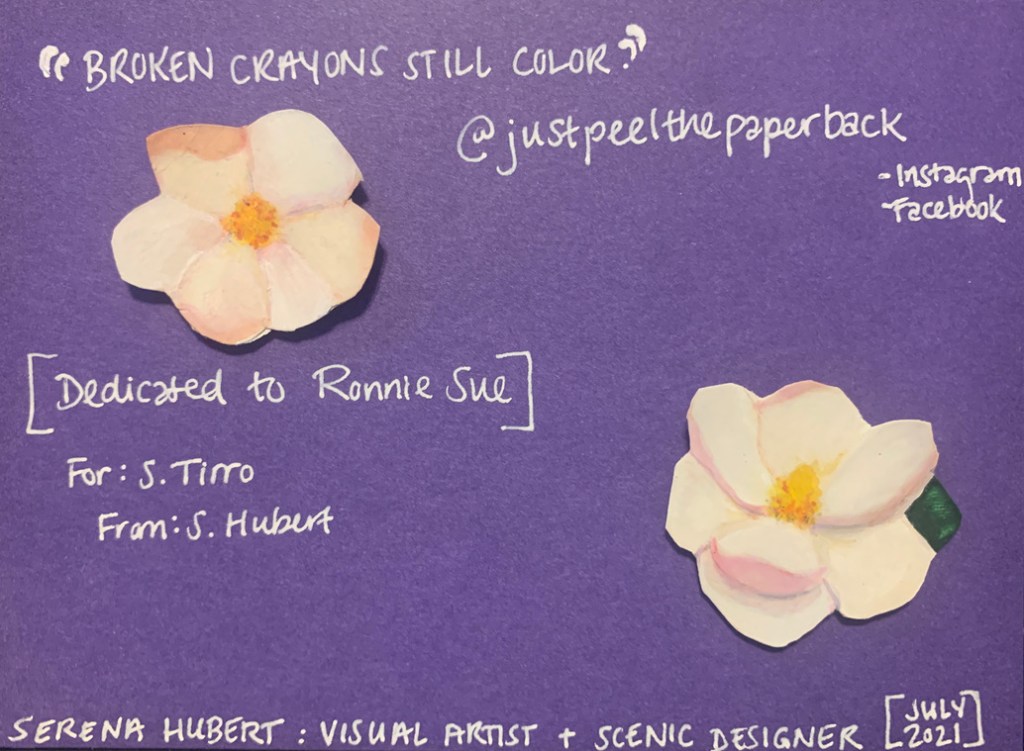 "BROKEN CRAYONS STILL COLOR."
@justpeelthepaperback
- Instagram
- Facebook
[Dedicated to Ronnie Sue]
For: S. Tirro
From: S. Hubert
SERENA HUBERT : VISUAL ARTIST + SCENIC DESIGNER [JULY
2021]